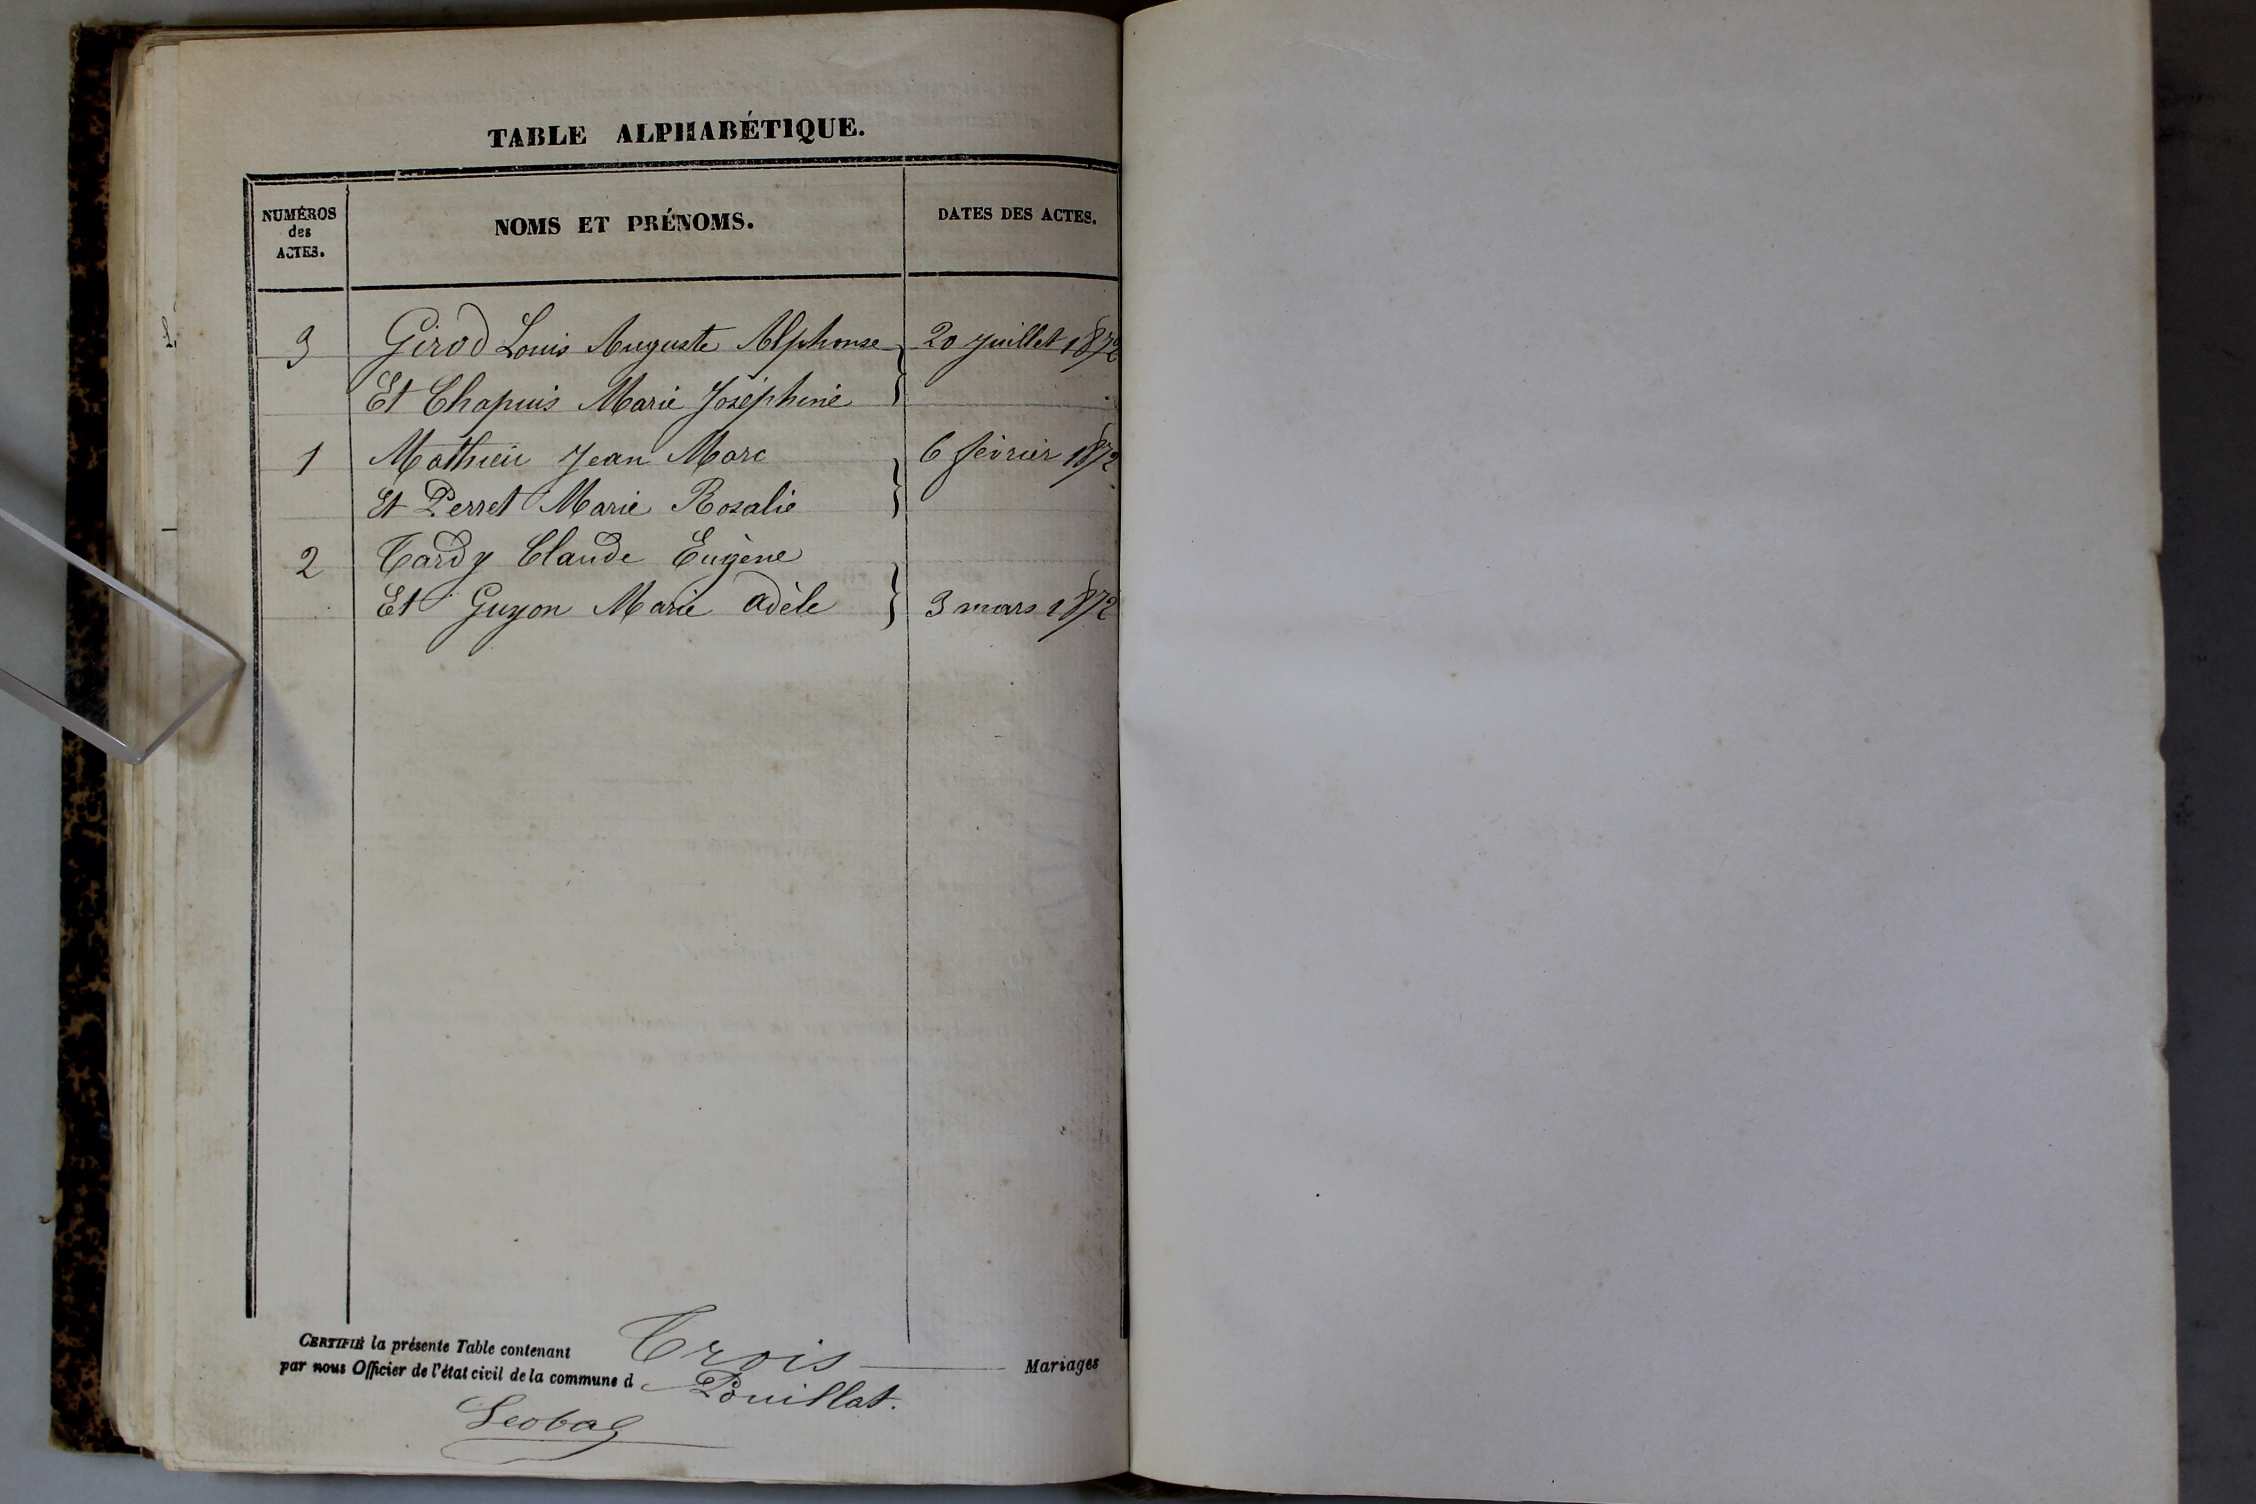 TABLE ALPHABÉTIQUE.
NUMÉROS
des
ACTES.
NOMS ET PRÉNOMS.
DATES DES ACTES.
3 Girod Louis Auguste Alphonse 20 juillet 1872
Et Chapuis Marie Joséphine
1 Mathieu Jean Marc 6 février 1872
Et Perret Marie Rosalie
2 Tardy Claude Eugène
Et Guyon Marie adèle 3 mars 1872
CERTIFIÉ la présente Table contenant Trois Mariages
par nous Officier de l'état civil de la commune d Pouillat.